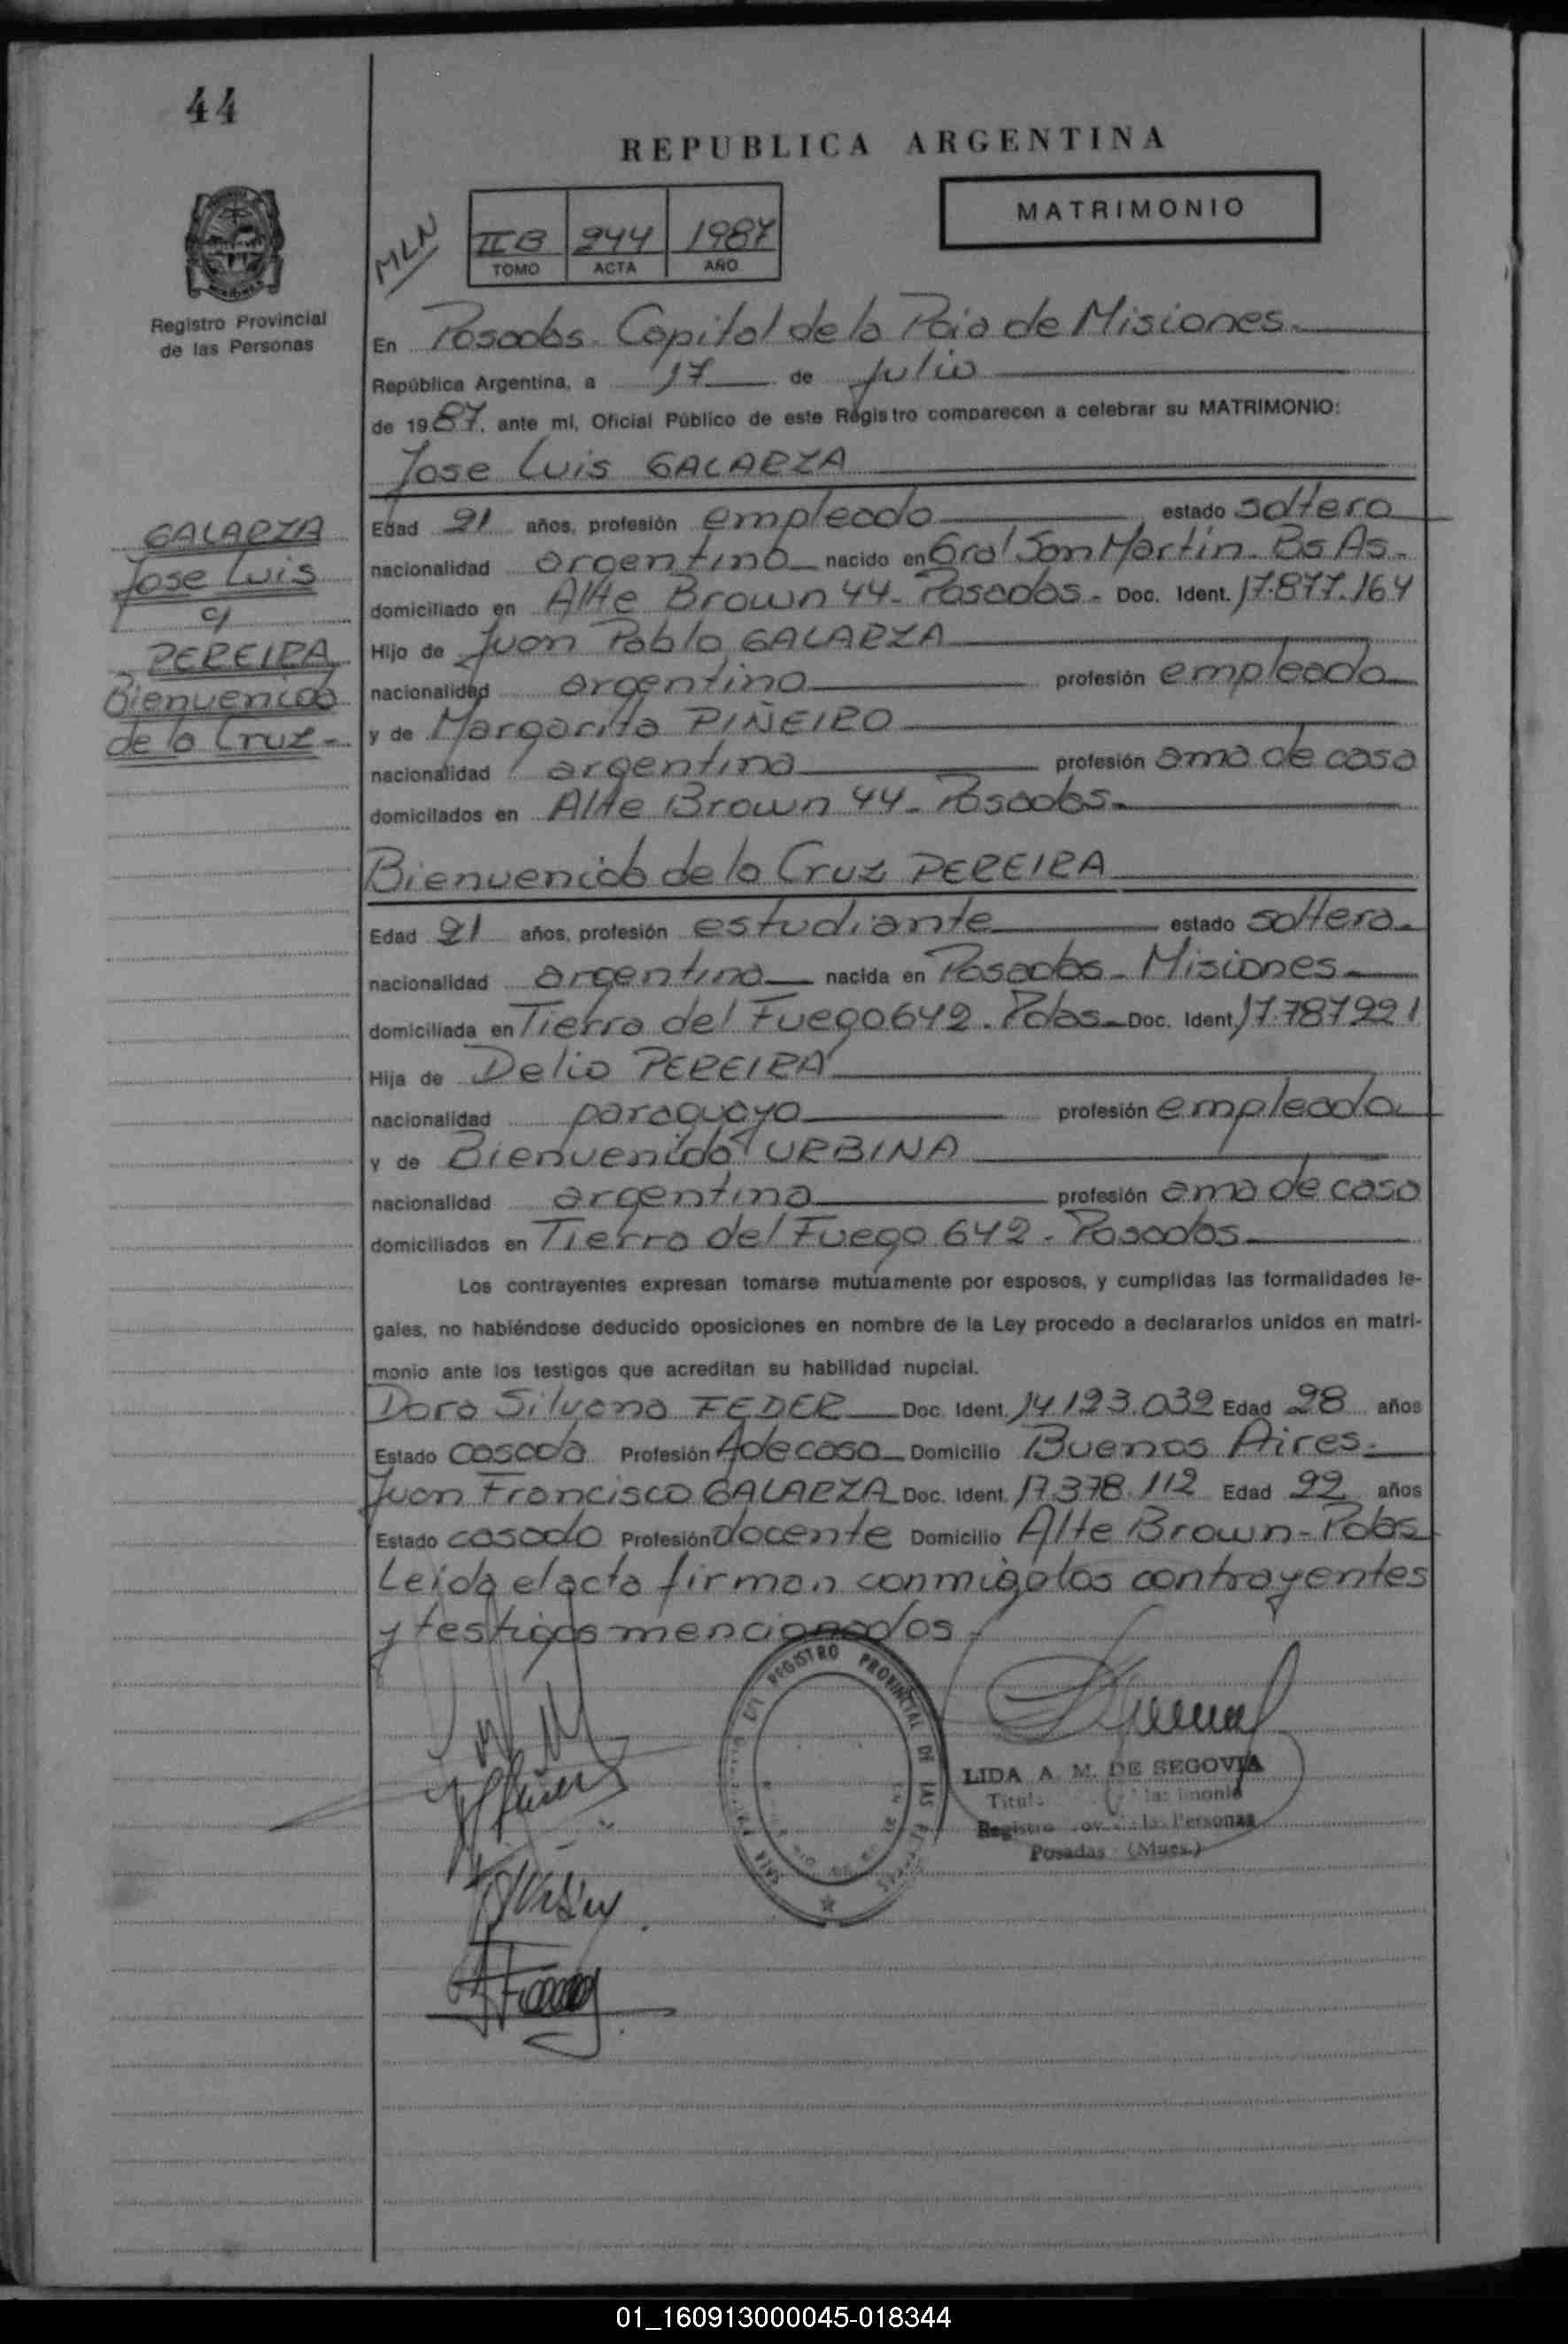 44
REPUBLICA ARGENTINA
MATRIMONIO
MLN
II B 244 1987
TOMO ACTA AÑO
Registro Provincial
de las Personas
En Posadas Capital de la Pcia de Misiones
República Argentina, a 17 de Julio
de 1987, ante mí, Oficial Público de este Registro comparecen a celebrar su MATRIMONIO:
Jose Luis GALARZA
GALARZA
Jose Luis
c/
PEREIRA
Bienvenida
de la Cruz
Edad 21 años, profesión empleado estado soltero
nacionalidad argentina nacido en Gral San Martín. Bs As.
domiciliado en Alte Brown 44 - Posadas - Doc. Ident. 17.877.164
Hijo de Juan Pablo GALARZA
nacionalidad argentina profesión empleado
y de Margarita PIÑEIRO
nacionalidad argentina profesión ama de casa
domicilados en Alte Brown 44 - Posadas
Bienvenida de la Cruz PEREIRA
Edad 21 años, profesión estudiante estado soltera
nacionalidad argentina nacida en Posadas - Misiones
domiciliada en Tierra del Fuego 642 - Pdas Doc. Ident. 17.787221
Hija de Delio PEREIRA
nacionalidad paraguaya profesión empleado
y de Bienvenida URBINA
nacionalidad argentina profesión ama de casa
domiciliados en Tierra del Fuego 642 - Posadas
Los contrayentes expresan tomarse mutuamente por esposos, y cumplidas las formalidades le-
gales, no habiéndose deducido oposiciones en nombre de la Ley procedo a declararlos unidos en matri-
monio ante los testigos que acreditan su habilidad nupcial.
Dora Silvana FEDER Doc. Ident. 14.123.032 Edad 28 años
Estado casada Profesión A de casa Domicilio Buenos Aires
Juan Francisco GALARZA Doc. Ident. 17.378.112 Edad 22 años
Estado casado Profesión docente Domicilio Alte Brown - Pdas
Leida el acta firman conmigo los contrayentes
y testigos mencionados
REGISTRO PROVINCIAL DE LAS
LIDA A. M. DE SEGOVIA
Registro las Personas
Posadas (Mnes.)
01_160913000045-018344